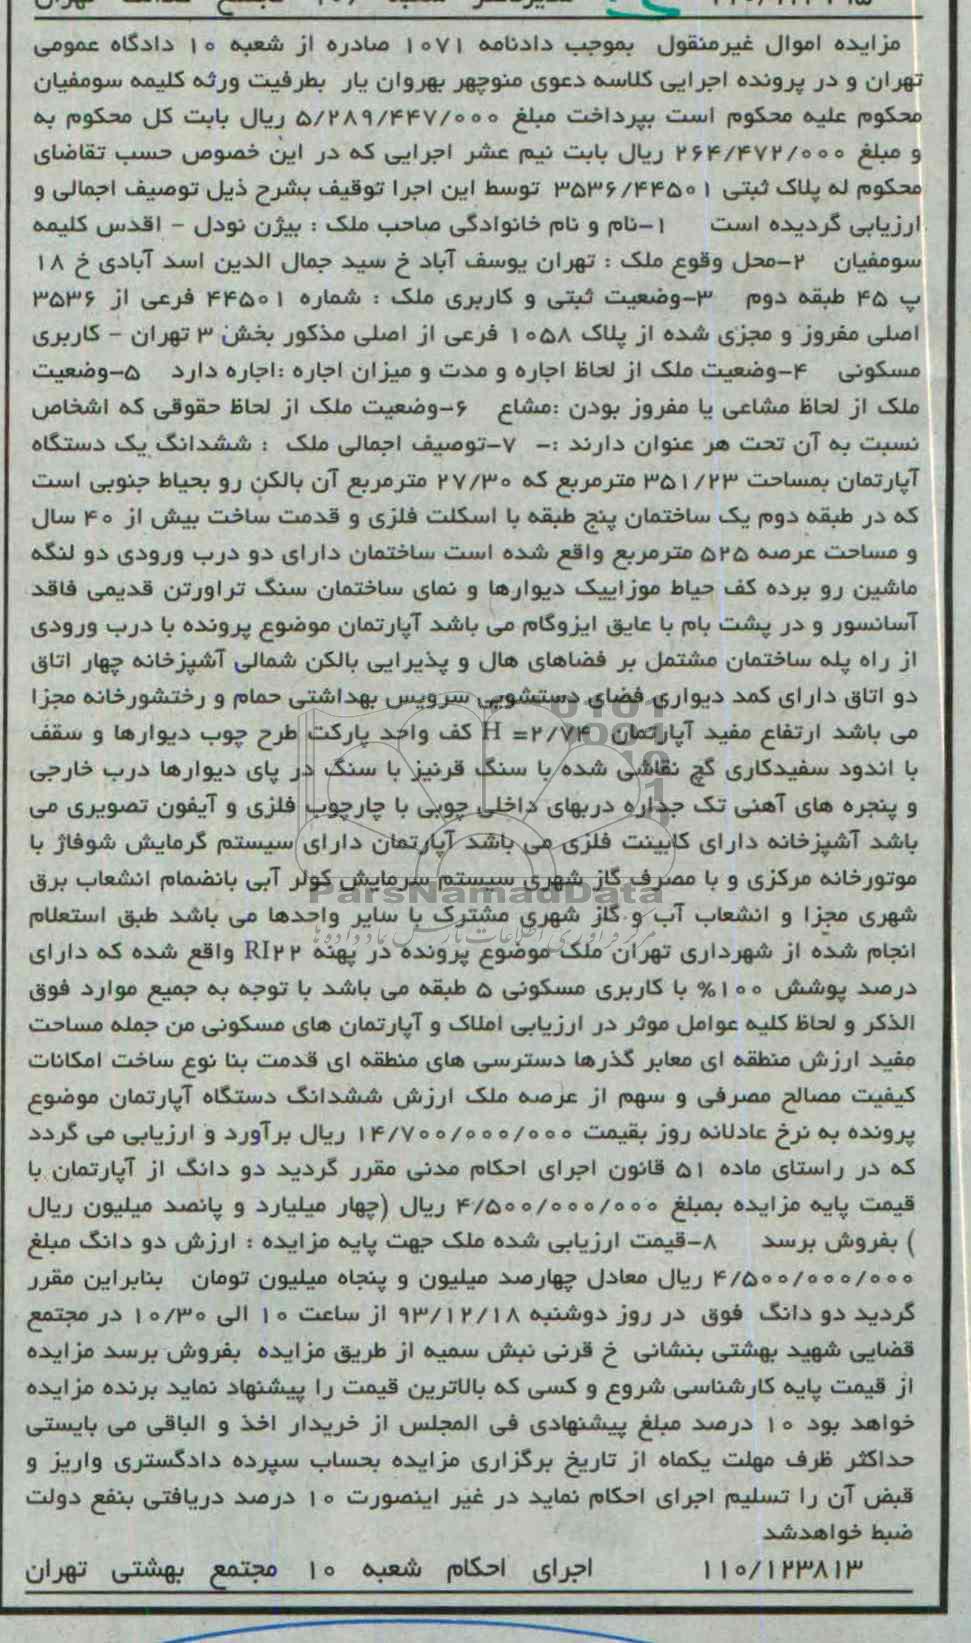 مزایده اموال غیرمنقول بموجب دادنامه ۱۰۷۱ صادره از شعبه ۱۰ دادگاه عمومی
تهران و در پرونده اجرایی کلاسه دعوی منوچهر بهروان یار بطرفیت ورثه کلیمه سومفیان
محکوم علیه محکوم است بپرداخت مبلغ ۵/۲۸۹/۴۴۷/۰۰۰ ریال بابت کل محکوم به
و مبلغ ۲۶۴/۴۷۲/۰۰۰ ریال بابت نیم عشر اجرایی که در این خصوص حسب تقاضای
محکوم له پلاک ثبتی ۳۵۳۶/۴۴۵۰۱ توسط این اجرا توقیف بشرح ذیل توصیف اجمالی و
ارزیابی گردیده است ۱-نام و نام خانوادگی صاحب ملک : بیژن نودل - اقدس کلیمه
سومفیان ۲-محل وقوع ملک : تهران یوسف آباد خ سید جمال الدین اسد آبادی خ ۱۸
پ ۴۵ طبقه دوم ۳-وضعیت ثبتی و کاربری ملک : شماره ۴۴۵۰۱ فرعی از ۳۵۳۶
اصلی مفروز و مجزی شده از پلاک ۱۰۵۸ فرعی از اصلی مذکور بخش ۳ تهران - کاربری
مسکونی ۴-وضعیت ملک از لحاظ اجاره و مدت و میزان اجاره :اجاره دارد ۵-وضعیت
ملک از لحاظ مشاعی یا مفروز بودن :مشاع ۶-وضعیت ملک از لحاظ حقوقی که اشخاص
نسبت به آن تحت هر عنوان دارند :- ۷-توصیف اجمالی ملک : ششدانگ یک دستگاه
آپارتمان بمساحت ۳۵۱/۲۳ مترمربع که ۲۷/۳۰ مترمربع آن بالکن رو بحیاط جنوبی است
که در طبقه دوم یک ساختمان پنج طبقه با اسکلت فلزی و قدمت ساخت بیش از ۴۰ سال
و مساحت عرصه ۵۲۵ مترمربع واقع شده است ساختمان دارای دو درب ورودی دو لنگه
ماشین رو برده کف حیاط موزاییک دیوارها و نمای ساختمان سنگ تراورتن قدیمی فاقد
آسانسور و در پشت بام با عایق ایزوگام می باشد آپارتمان موضوع پرونده با درب ورودی
از راه پله ساختمان مشتمل بر فضاهای هال و پذیرایی بالکن شمالی آشپزخانه چهار اتاق
دو اتاق دارای کمد دیواری فضای دستشویی سرویس بهداشتی حمام و رختشورخانه مجزا
می باشد ارتفاع مفید آپارتمان H =۲/۷۴ کف واحد پارکت طرح چوب دیوارها و سقف
با اندود سفیدکاری گچ نقاشی شده با سنگ قرنیز با سنگ در پای دیوارها درب خارجی
و پنجره های آهنی تک جداره دربهای داخلی چوبی با چارچوب فلزی و آیفون تصویری می
باشد آشپزخانه دارای کابینت فلزی می باشد آپارتمان دارای سیستم گرمایش شوفاژ با
موتورخانه مرکزی و با مصرف گاز شهری سیستم سرمایش کولر آبی بانضمام انشعاب برق
ParsNamadData
شهری مجزا و انشعاب آب و گاز شهری مشترک با سایر واحدها می باشد طبق استعلام
انجام شده از شهرداری تهران ملک موضوع پرونده در پهنه RI۲۲ واقع شده که دارای
درصد پوشش ۱۰۰% با کاربری مسکونی ۵ طبقه می باشد با توجه به جمیع موارد فوق
الذکر و لحاظ کلیه عوامل موثر در ارزیابی املاک و آپارتمان های مسکونی من جمله مساحت
مفید ارزش منطقه ای معابر گذرها دسترسی های منطقه ای قدمت بنا نوع ساخت امکانات
کیفیت مصالح مصرفی و سهم از عرصه ملک ارزش ششدانگ دستگاه آپارتمان موضوع
پرونده به نرخ عادلانه روز بقیمت ۱۴/۷۰۰/۰۰۰/۰۰۰ ریال برآورد و ارزیابی می گردد
که در راستای ماده ۵۱ قانون اجرای احکام مدنی مقرر گردید دو دانگ از آپارتمان با
قیمت پایه مزایده بمبلغ ۴/۵۰۰/۰۰۰/۰۰۰ ریال (چهار میلیارد و پانصد میلیون ریال
) بفروش برسد ۸-قیمت ارزیابی شده ملک جهت پایه مزایده : ارزش دو دانگ مبلغ
۴/۵۰۰/۰۰۰/۰۰۰ ریال معادل چهارصد میلیون و پنجاه میلیون تومان بنابراین مقرر
گردید دو دانگ فوق در روز دوشنبه ۹۳/۱۲/۱۸ از ساعت ۱۰ الی ۱۰/۳۰ در مجتمع
قضایی شهید بهشتی بنشانی خ قرنی نبش سمیه از طریق مزایده بفروش برسد مزایده
از قیمت پایه کارشناسی شروع و کسی که بالاترین قیمت را پیشنهاد نماید برنده مزایده
خواهد بود ۱۰ درصد مبلغ پیشنهادی فی المجلس از خریدار اخذ و الباقی می بایستی
حداکثر ظرف مهلت یکماه از تاریخ برگزاری مزایده بحساب سپرده دادگستری واریز و
قبض آن را تسلیم اجرای احکام نماید در غیر اینصورت ۱۰ درصد دریافتی بنفع دولت
ضبط خواهدشد
۱۱۰/۱۲۳۸۱۳ اجرای احکام شعبه ۱۰ مجتمع بهشتی تهران